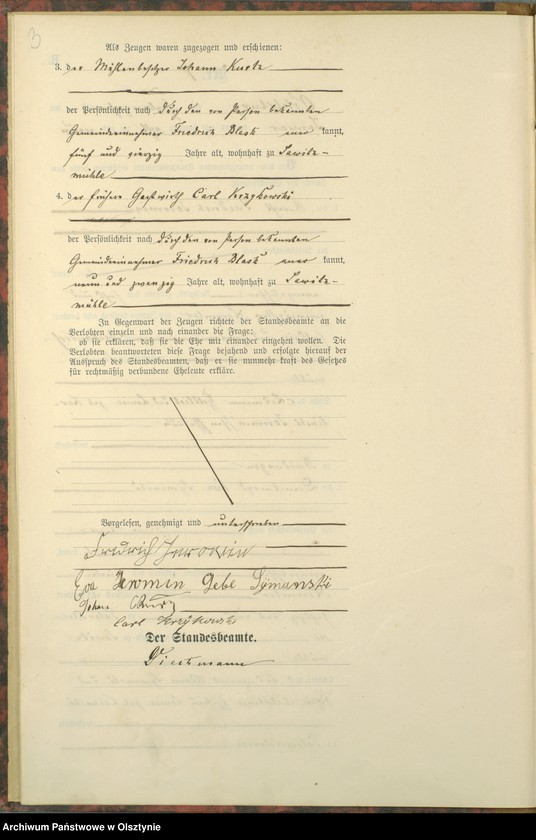 3
Als Zeugen waren zugezogen und erschienen:
3. der Mühlenbesitzer Johann Kurtz
der Persönlichkeit nach durch den von Person bekannten
Gemeindeeinnehmer Friedrich Blask aner kannt,
fünf und vierzig Jahre alt, wohnhaft zu Sawitz-
mühle
4. der frühere Gastwirth Carl Krzykowski
der Persönlichkeit nach durch den von Person bekannten
Gemeindeeinnehmer Friedrich Blask aner kannt,
neun und zwanzig Jahre alt, wohnhaft zu Sawitz-
mühle
In Gegenwart der Zeugen richtete der Standesbeamte an die
Verlobten einzeln und nach einander die Frage:
ob sie erklären, daß sie die Ehe mit einander eingehen wollen. Die
Verlobten beantworteten diese Frage bejahend und erfolgte hierauf der
Ausspruch des Standesbeamten, daß er sie nunmehr kraft des Gesetzes
für rechtmäßig verbundene Eheleute erkläre.
Vorgelesen, genehmigt und unterschrieben
Fridrich
Eva Jeromin Gebe Symanski
Johan
Carl Krzykowski
Der Standesbeamte.
Archiwum Państwowe w Olsztynie